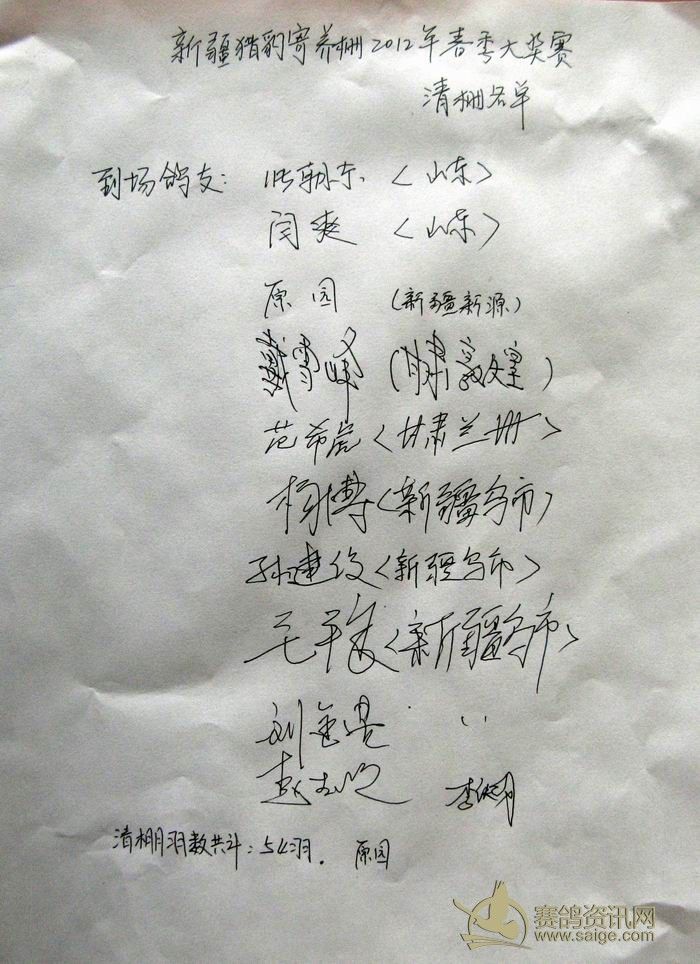 新疆猎豹寄养棚2012年春季大奖赛
清棚名单
到场鸽友: 〈山东〉
闫爽 〈山东〉
原园 (新疆新源)
戴雪峰 (甘肃敦煌)
范希 〈甘肃兰州〉
杨博 (新疆乌市)
孙建俊 〈新疆乌市〉
〈新疆乌市〉
刘 〃
赵 李
清棚羽数共计:54羽. 原园
赛鸽资讯网
www.saige.com